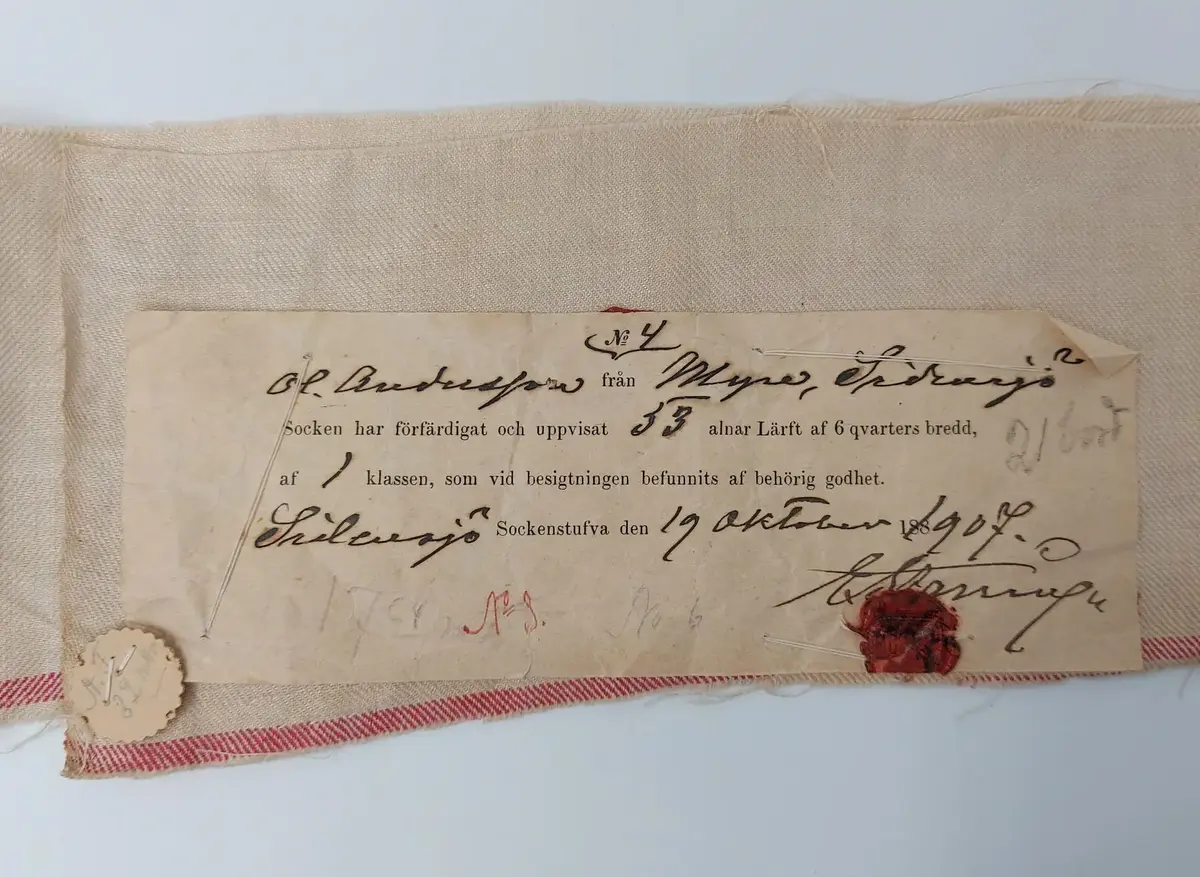 № 4
Ol. Andersson från Myre, Sidensjö
Socken har förfärdigat och uppvisat 53 alnar Lärft af 6 qvarters bredd,
af 1 klassen, som vid besigtningen befunnits af behörig godhet.
Sidensjö Sockenstufva den 19 Oktober 1907.
№ 8.
No 6